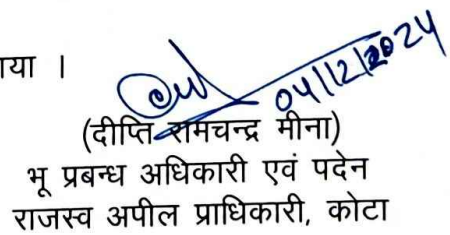 गया ।
04/12/2024
(दीप्ति रामचन्द्र मीना)
भू प्रबन्ध अधिकारी एवं पदेन
राजस्व अपील प्राधिकारी, कोटा